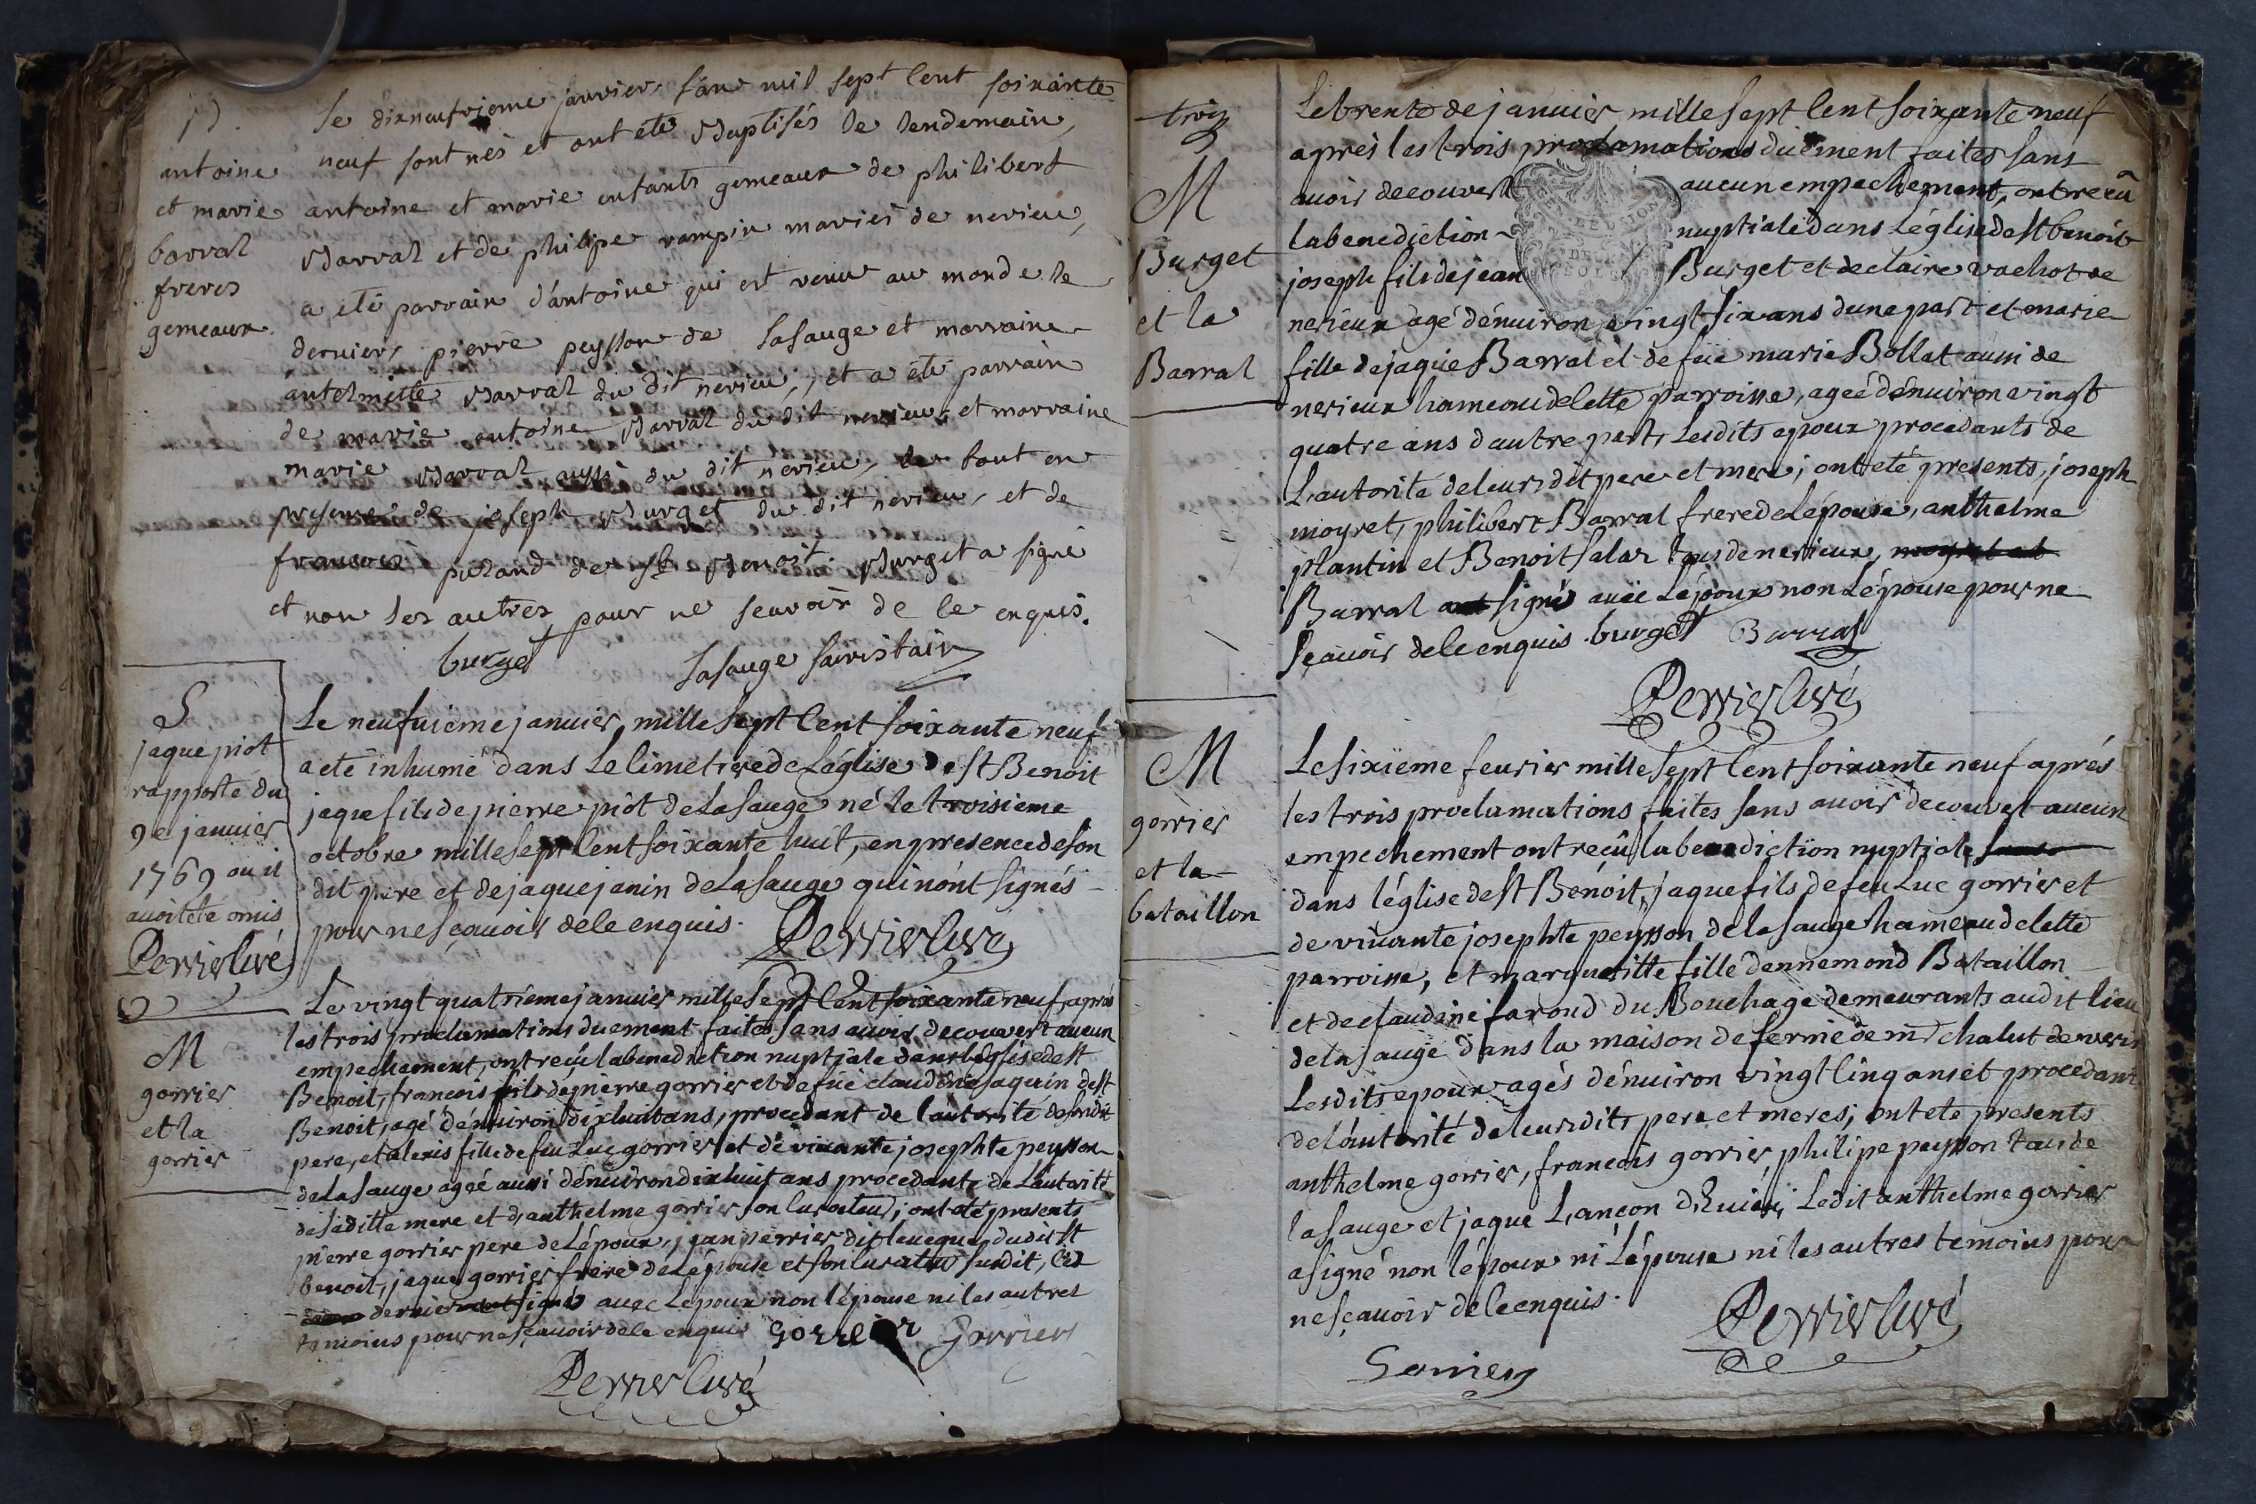 antoine
et marie
barral
freres
gemeaux.
Le dixneufvieme janvier l'an mil sept cent soixante
neuf sont nés et ont eté Baptisés le lendemain,
antoine et marie enfants gemeaux de philibert
Barral et de philipe rampin mariés de nerieu,
a eté parrain d'antoine qui est venu au monde le
dernier, pierre peysson de Lasauge et marraine
antelmette Barral du dit nerieu, et a eté parrain
de marie antoine Barral du dit nerieu, et marraine
marie Barral aussi du dit nerieu, le tout en
presence de joseph Burget du dit nerieu, et de
francois de st Benoit. Burget a signé
et non les autres pour ne scavoir de ce enquis.
burget Lasauge sacristain
S
jaque piot
rapporté du
9e januier
1769 ou il
auoit eté omis
Perrier Curé
Le neufuieme januier, mille sept Cent soixante neuf
a eté inhumé dans Le Cimetiere de L'église de st Benoit
jaque fils de pierre piot de Lasauge né Le troisieme
octobre mille sept Cent soixante huit, en presence de son
dit pere et de jaque janin de Lasauge qui n'ont signés
pour ne sçauoir de ce enquis. Perrier Curé
M
gorrier
et la
gorrier
Le vingt quatrieme januier mille sept Cent soixante neuf, aprés
les trois proclamations duement faites sans auoir decouvert aucun
empechement, ont reçu la benediction nuptiale dans L'église de st
Benoit, francois fils de pierre gorrier et de fuë claudine jaquin de st
Benoit, agé d'enuiron dix huit ans, procedant de l'autorité de son dit
pere, et alexis fille de feu Luc gorrier et de viuante josephte peysson
de Lasauge ageé aussi d'enuiron dix huit ans procedante de L'autorité
de sa ditte mere et d'anthelme gorrier son curateur; ont eté presents
pierre gorrier pere de L'époux, jean perrier dit leueque dudit st
benoit, jaque gorrier frere de L'épouse et son curateur susdit, Ces
dernier signés auec L'epoux non l'épouse ni les autres
temoins pour ne sçauoir de ce enquis gorrier Gorrier
Perrier Curé
trois
M
Burget
et la
Barral
Le trente de januier mille sept Cent soixante neuf
après les trois proclamations duëment faites sans
auoir decouvert aucun empechement, ont reçû
la benediction nuptiale dans L'église de st benoit
joseph fils de jean Burget et de claire vachot de
nerieux agé d'enuiron vingt six ans d'une part et marie
fille de jaque Barral et de fuë marie Bollat aussi de
nerieux hameau de cette parroisse, ageé d'enuiron vingt
quatre ans d'autre part, Lesdits epoux procedants de
L'autorité de leurs dit pere et mere; ont eté presents, joseph
moyret, philibert Barral frere de L'épouse, anthelme
plantin et Benoit salar tous de nerieux, moyret et
Barral ont signé auec L'époux non L'épouse pour ne
sçauoir de ce enquis. burget Barral
Perrier Curé
M
gorrier
et la
bataillon
Le sixiëme feurier mille sept Cent soixante neuf aprés
les trois proclamations faites sans auoir decouvert aucun
empechement ont reçû la benediction nuptiale
dans l'église de st Benoit, jaque fils de feu Luc gorrier et
de viuante josephte peysson de la sauge hameau de cette
parroisse, et margueritte fille d'ennemond Bataillon
et de claudine farond du Bouchage demeurants audit lieu
de la sauge dans la maison de ferme de mr chalut
Lesdits epoux agés d'enuiron vingt Cinq ans et procedants
de l'autorité de leurs dits pere et meres; ont eté presents
anthelme gorrier, francois gorrier, philipe peysson tous de
la sauge et jaque Lançon Ledit anthelme gorrier
a signé non l'époux ni L'épouse ni les autres temoins pour
ne sçauoir de ce enquis.
Perrier Curé
Gorrier